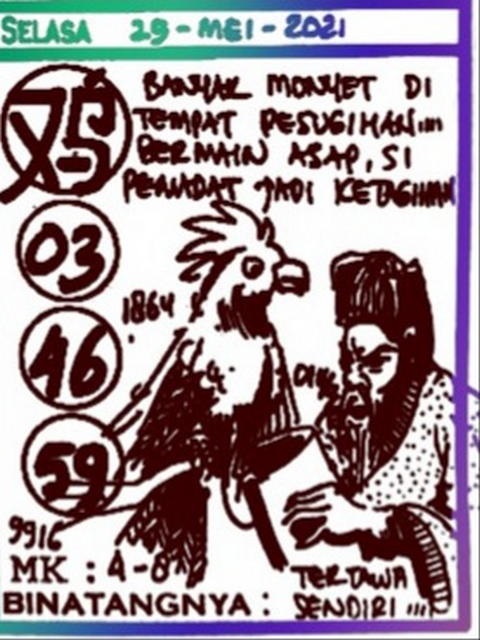 SELASA 29-MEI-2021
BANYAK MONYET DI
TEMPAT PESUGIHAN....
BERMAIN ASAP, SI
PEMADAT JADI KETAGIHAN
03
1864
46
59
9916
MK : 4-8
TERTAWA
BINATANGNYA : SENDIRI ....